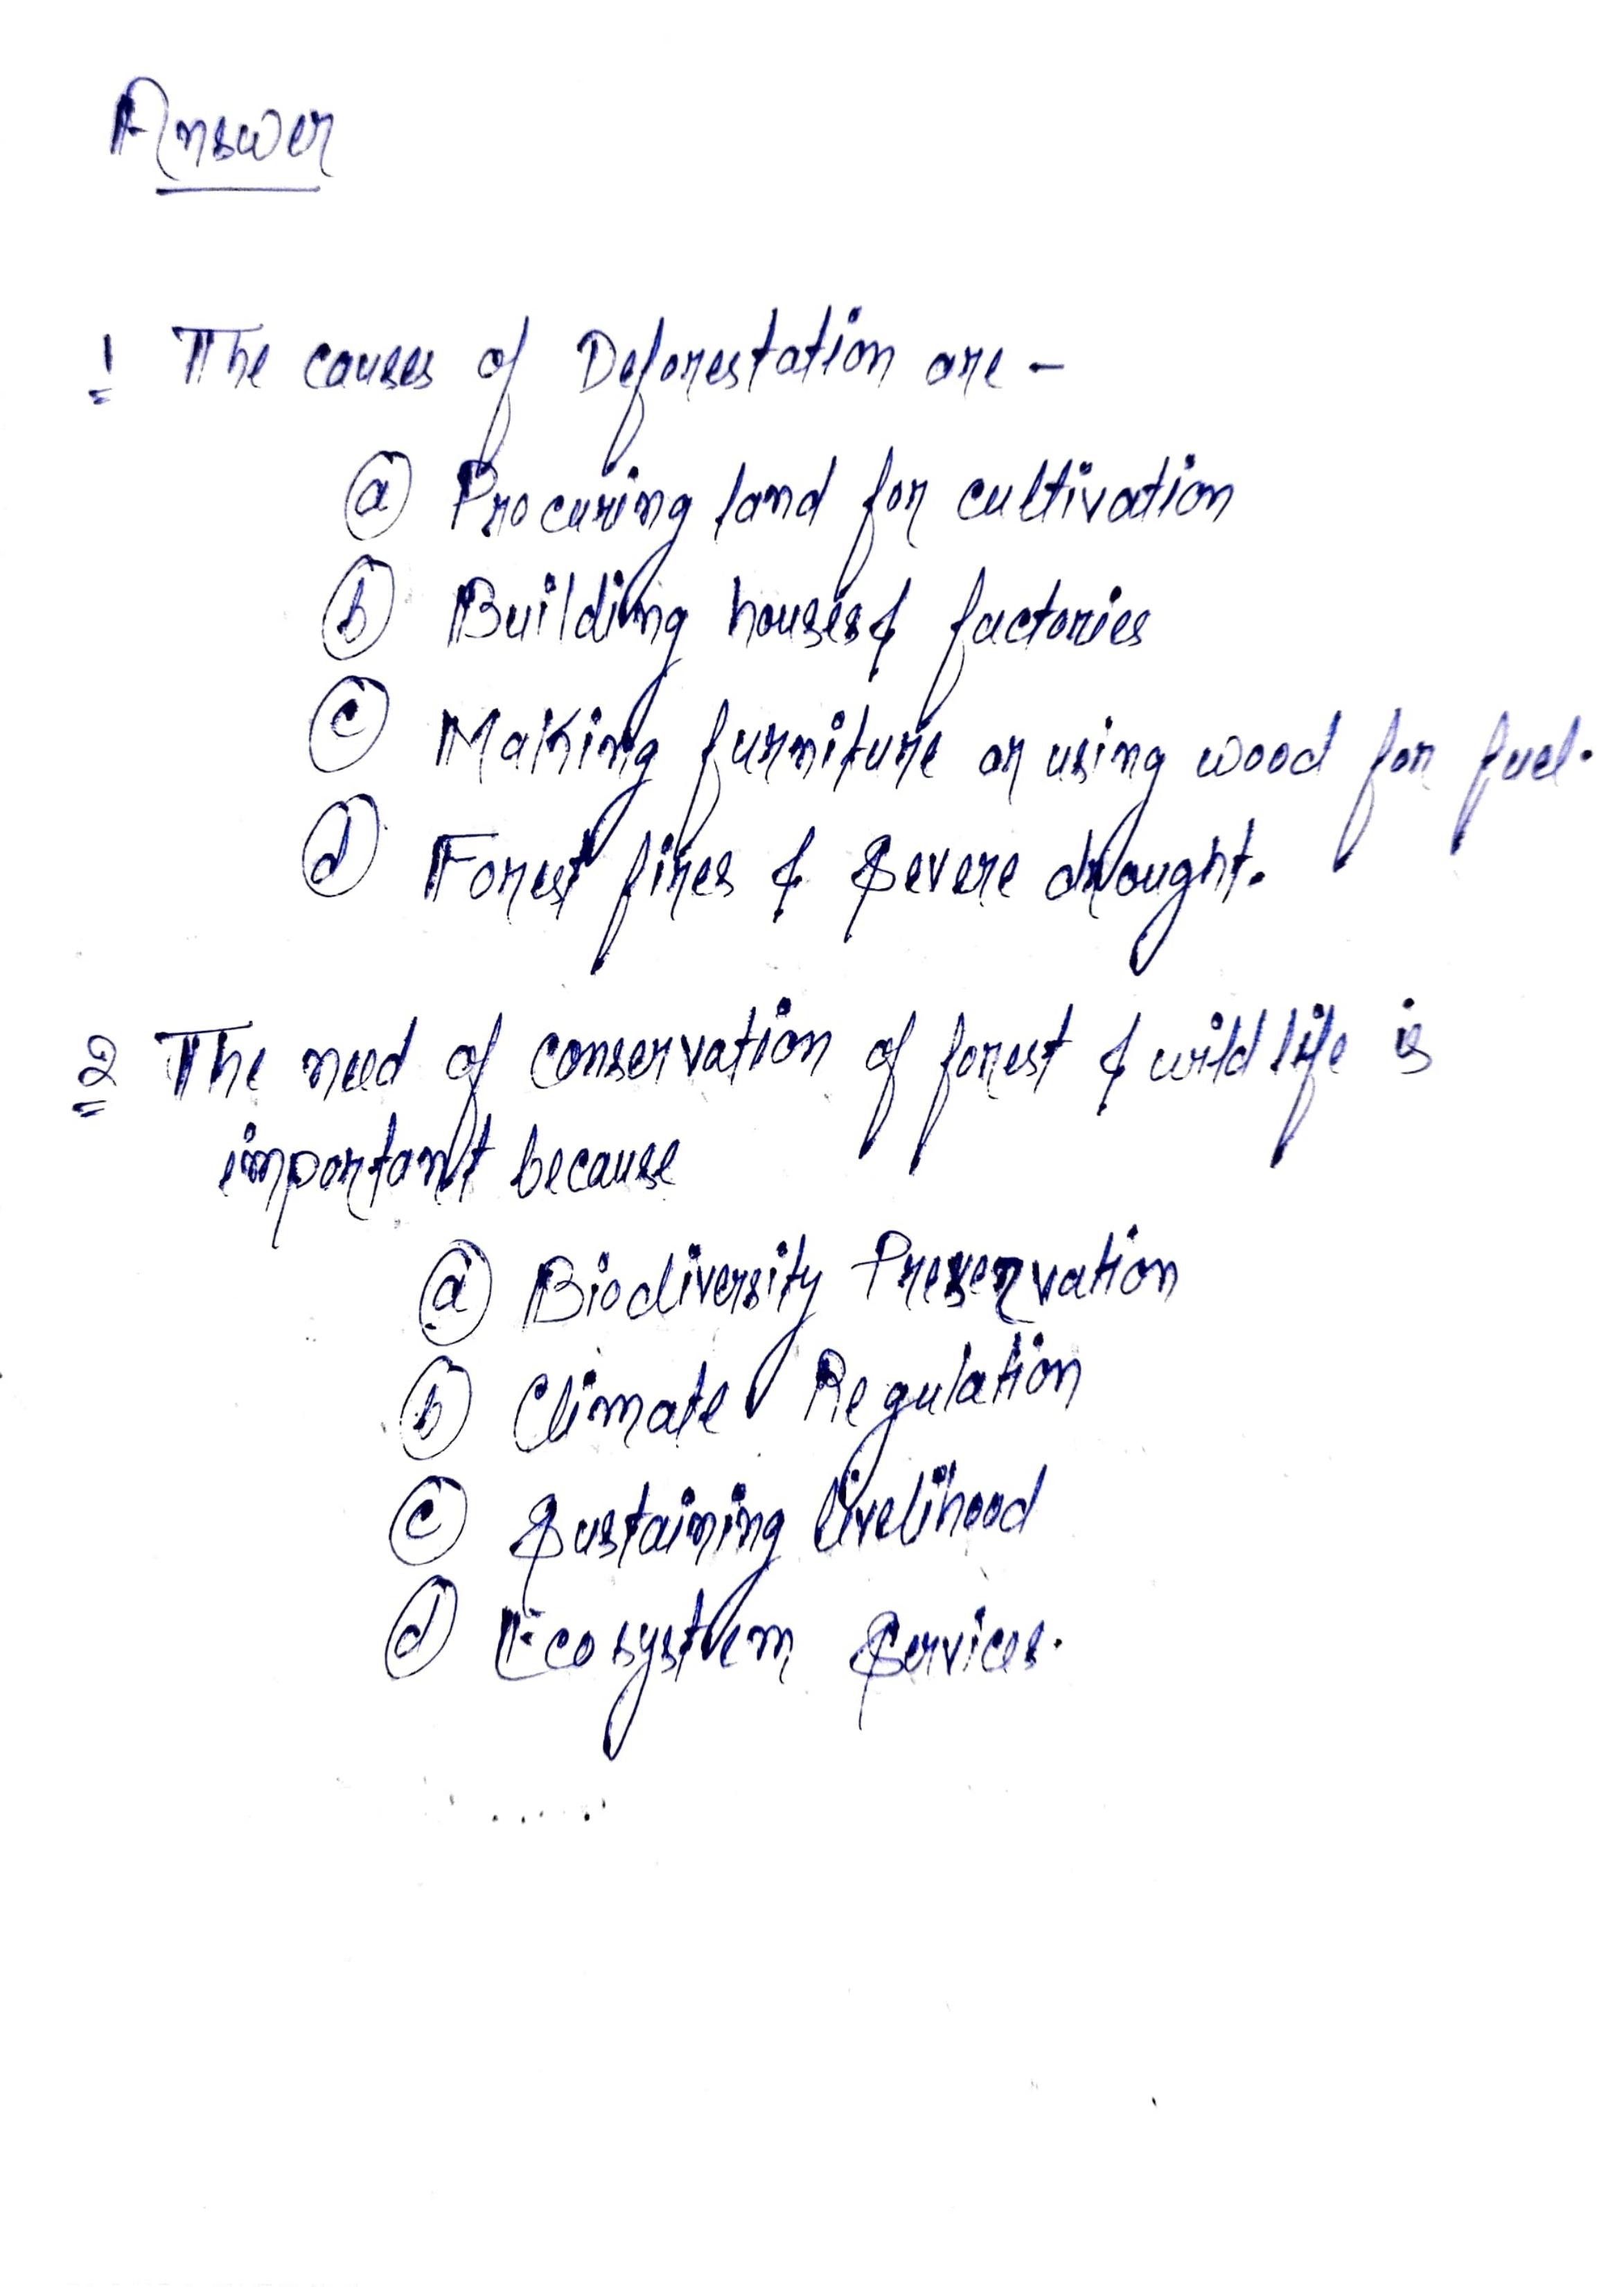 Answer
1 The causes of Deforestation are -
a Procuring land for cultivation
b Building houses & factories
c Making furniture or using wood for fuel.
d Forest fires & Severe drought.
2 The need of conservation of forest & wild life is
important because
a Biodiversity Preservation
b Climate Regulation
c Sustaining livelihood
d Ecosystem Services.